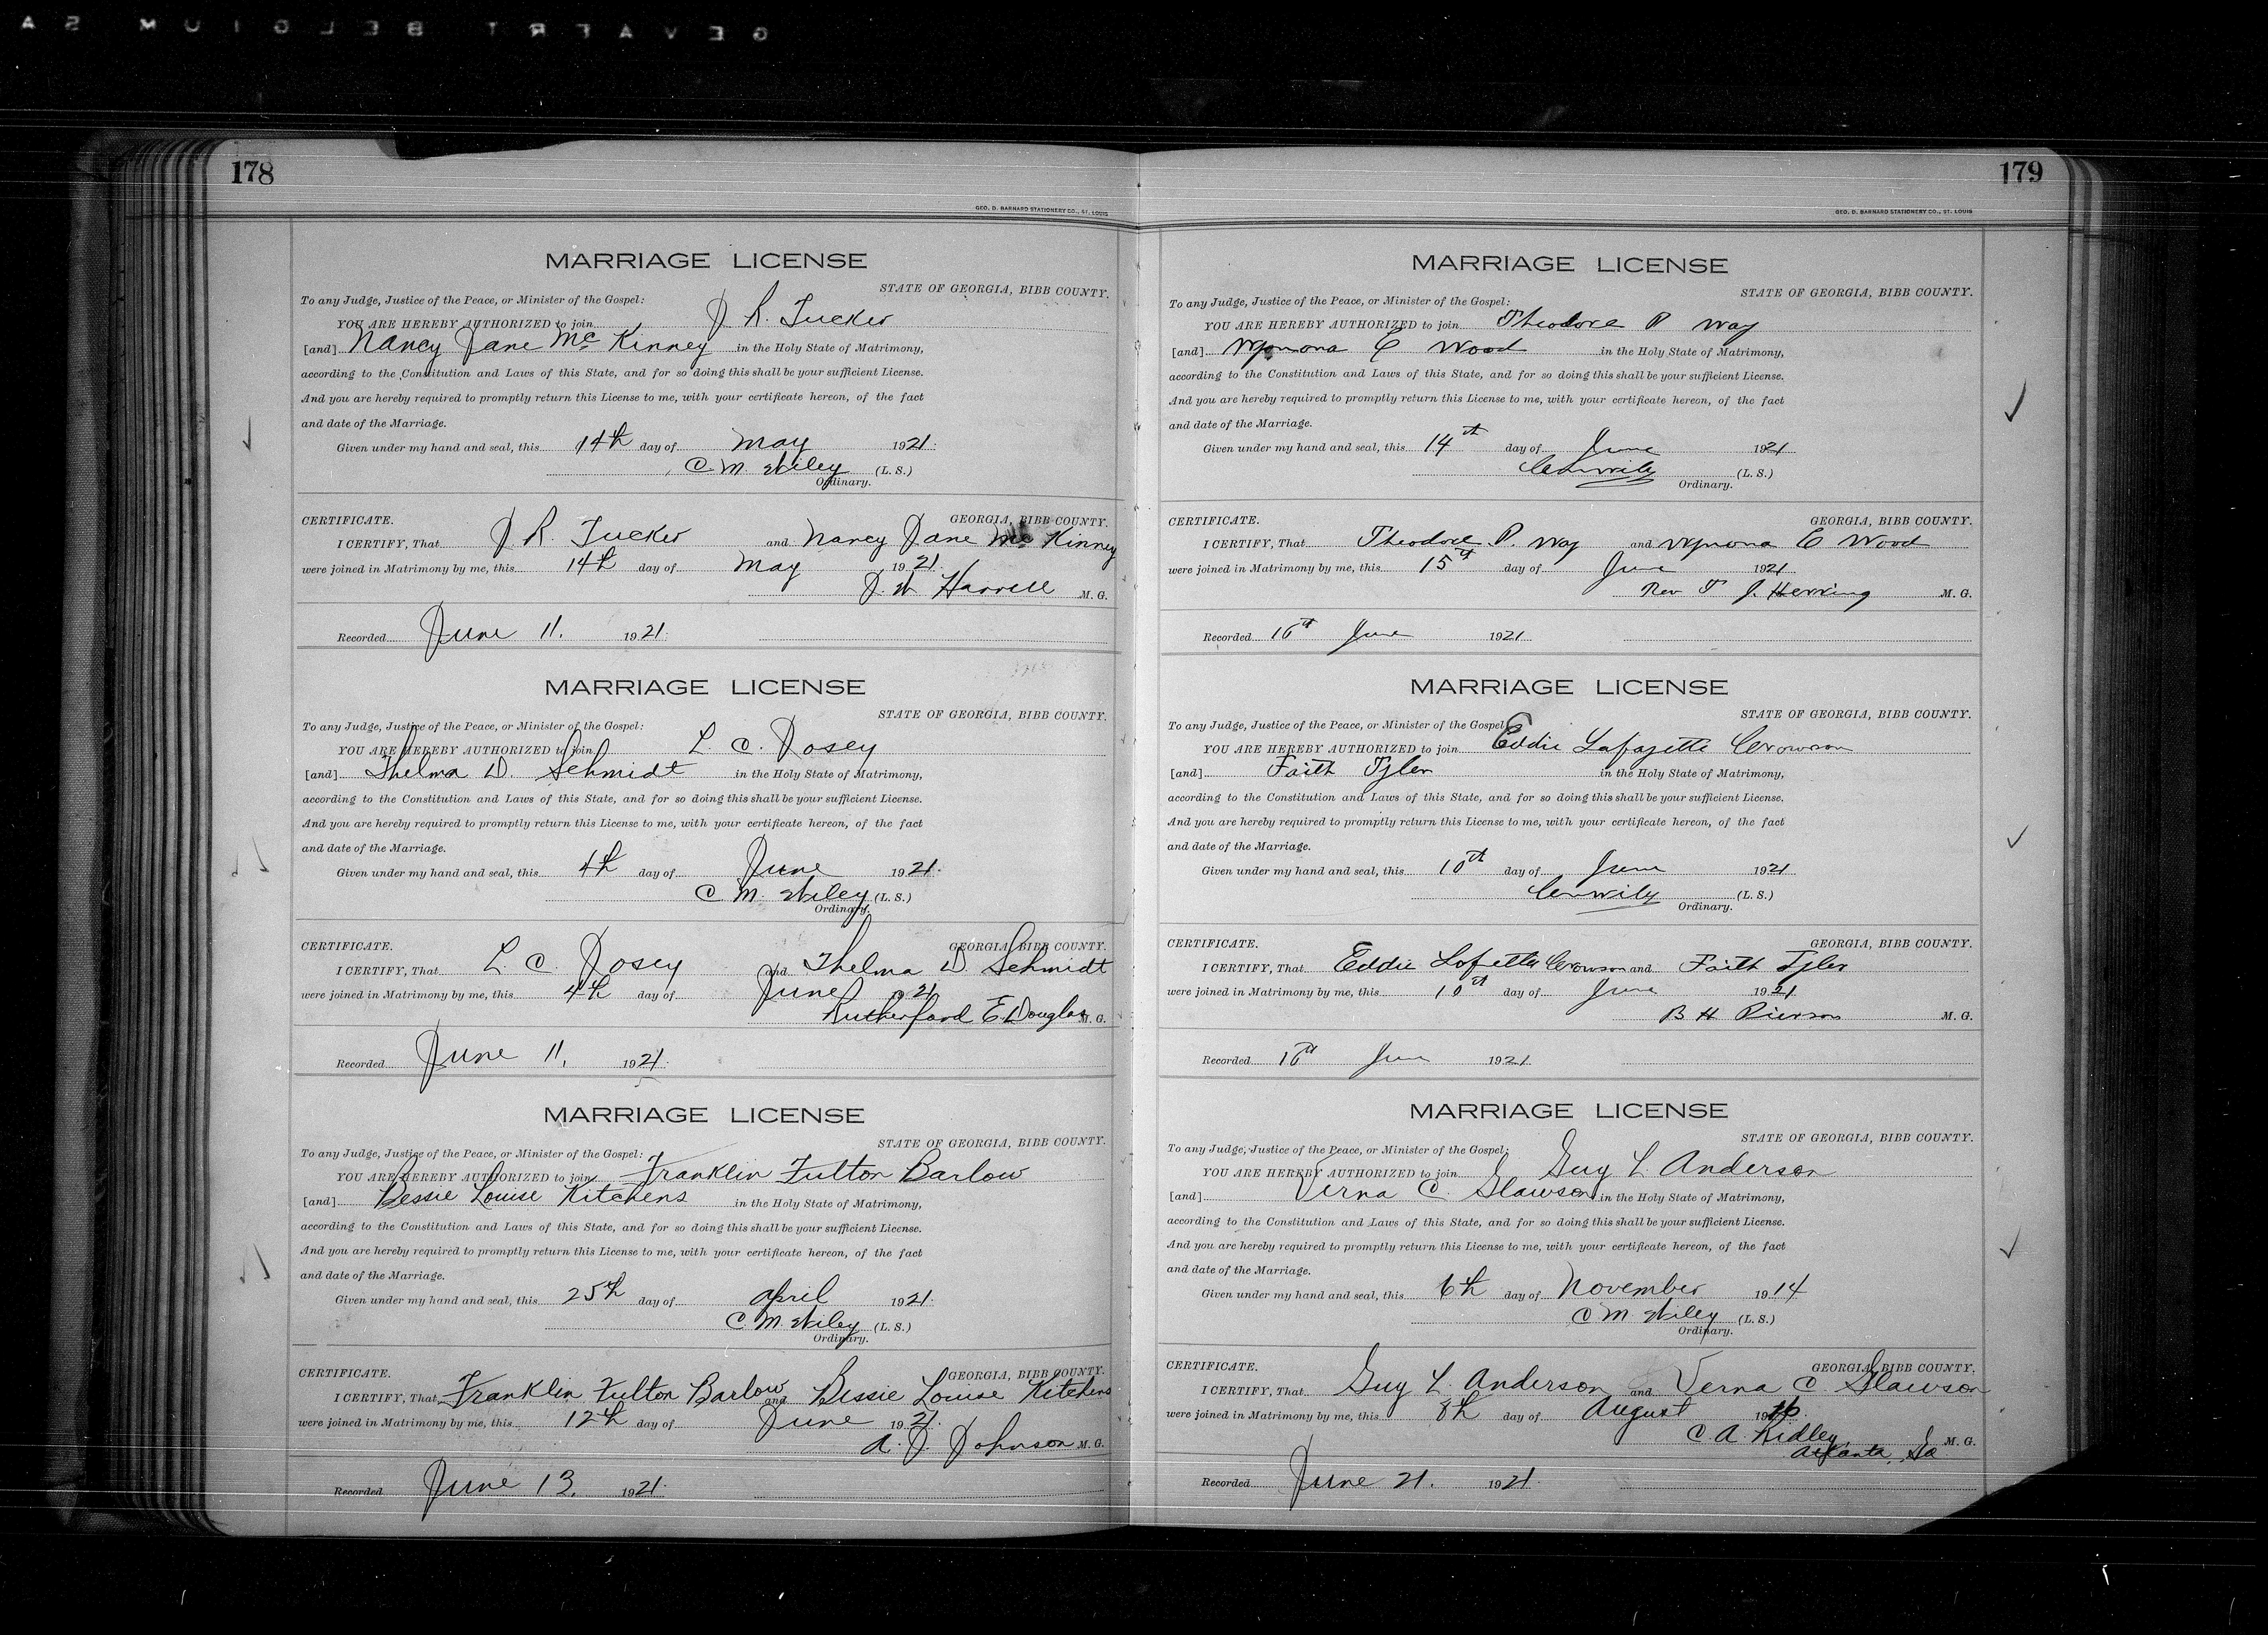 GEVAERT BELGIUM SA
178
GEO. D. BARNARD STATIONERY CO., ST. LOUIS
MARRIAGE LICENSE
STATE OF GEORGIA, BIBB COUNTY.
To any Judge, Justice of the Peace, or Minister of the Gospel:
YOU ARE HEREBY AUTHORIZED to join J R. Tucker
[and] Nancy Jane McKinney in the Holy State of Matrimony,
according to the Constitution and Laws of this State, and for so doing this shall be your sufficient License.
And you are hereby required to promptly return this License to me, with your certificate hereon, of the fact
and date of the Marriage.
Given under my hand and seal, this 14th day of May 1921.
C. M. Wiley (L. S.)
Ordinary.
CERTIFICATE. GEORGIA, BIBB COUNTY.
I CERTIFY, That J. R. Tucker and Nancy Jane McKinney
were joined in Matrimony by me, this 14th day of May 1921.
J. W. Harrell M. G.
Recorded June 11. 1921.
MARRIAGE LICENSE
STATE OF GEORGIA, BIBB COUNTY.
To any Judge, Justice of the Peace, or Minister of the Gospel:
YOU ARE HEREBY AUTHORIZED to join L. C. Posey
[and] Thelma D. Schmidt in the Holy State of Matrimony,
according to the Constitution and Laws of this State, and for so doing this shall be your sufficient License.
And you are hereby required to promptly return this License to me, with your certificate hereon, of the fact
and date of the Marriage.
Given under my hand and seal, this 4th day of June 1921.
C. M. Wiley (L. S.)
Ordinary.
CERTIFICATE. GEORGIA, BIBB COUNTY.
I CERTIFY, That L. C. Posey and Thelma D. Schmidt
were joined in Matrimony by me, this 4th day of June 1921
Rutherford E. Douglas M. G.
Recorded June 11. 1921.
MARRIAGE LICENSE
STATE OF GEORGIA, BIBB COUNTY.
To any Judge, Justice of the Peace, or Minister of the Gospel:
YOU ARE HEREBY AUTHORIZED to join Franklin Fulton Barlow
[and] Bessie Louise Kitchens in the Holy State of Matrimony,
according to the Constitution and Laws of this State, and for so doing this shall be your sufficient License.
And you are hereby required to promptly return this License to me, with your certificate hereon, of the fact
and date of the Marriage.
Given under my hand and seal, this 25th day of April 1921.
C. M. Wiley (L. S.)
Ordinary.
CERTIFICATE. GEORGIA, BIBB COUNTY.
I CERTIFY, That Franklin Fulton Barlow and Bessie Louise Kitchens
were joined in Matrimony by me, this 12th day of June 1921.
A. J. Johnson M. G.
Recorded June 13. 1921.
179
GEO. D. BARNARD STATIONERY CO., ST. LOUIS
MARRIAGE LICENSE
STATE OF GEORGIA, BIBB COUNTY.
To any Judge, Justice of the Peace, or Minister of the Gospel:
YOU ARE HEREBY AUTHORIZED to join Theodore P Way
[and] Wynona C Wood in the Holy State of Matrimony,
according to the Constitution and Laws of this State, and for so doing this shall be your sufficient License.
And you are hereby required to promptly return this License to me, with your certificate hereon, of the fact
and date of the Marriage.
Given under my hand and seal, this 14th day of June 1921
CM Wiley (L. S.)
Ordinary.
CERTIFICATE. GEORGIA, BIBB COUNTY.
I CERTIFY, That Theodore P. Way and Wynona C Wood
were joined in Matrimony by me, this 15th day of June 1921
Rev T J. Herring M. G.
Recorded 16th June 1921
MARRIAGE LICENSE
STATE OF GEORGIA, BIBB COUNTY.
To any Judge, Justice of the Peace, or Minister of the Gospel:
YOU ARE HEREBY AUTHORIZED to join Eddie Lafayette Crowson
[and] Faith Tyler in the Holy State of Matrimony,
according to the Constitution and Laws of this State, and for so doing this shall be your sufficient License.
And you are hereby required to promptly return this License to me, with your certificate hereon, of the fact
and date of the Marriage.
Given under my hand and seal, this 10th day of June 1921
CM Wiley (L. S.)
Ordinary.
CERTIFICATE. GEORGIA, BIBB COUNTY.
I CERTIFY, That Eddie Lafette Crowson and Faith Tyler
were joined in Matrimony by me, this 10th day of June 1921
B H Pierson M. G.
Recorded 16th June 1921
MARRIAGE LICENSE
STATE OF GEORGIA, BIBB COUNTY.
To any Judge, Justice of the Peace, or Minister of the Gospel:
YOU ARE HEREBY AUTHORIZED to join Guy L. Anderson
[and] Verna C. Slawson in the Holy State of Matrimony,
according to the Constitution and Laws of this State, and for so doing this shall be your sufficient License.
And you are hereby required to promptly return this License to me, with your certificate hereon, of the fact
and date of the Marriage.
Given under my hand and seal, this 6th day of November 1914
C M. Wiley (L. S.)
Ordinary.
CERTIFICATE. GEORGIA, BIBB COUNTY.
I CERTIFY, That Guy L. Anderson and Verna C. Slawson
were joined in Matrimony by me, this 8th day of August 1916
C. A. Ridley, M. G.
Atlanta, Ga
Recorded June 21. 1921.